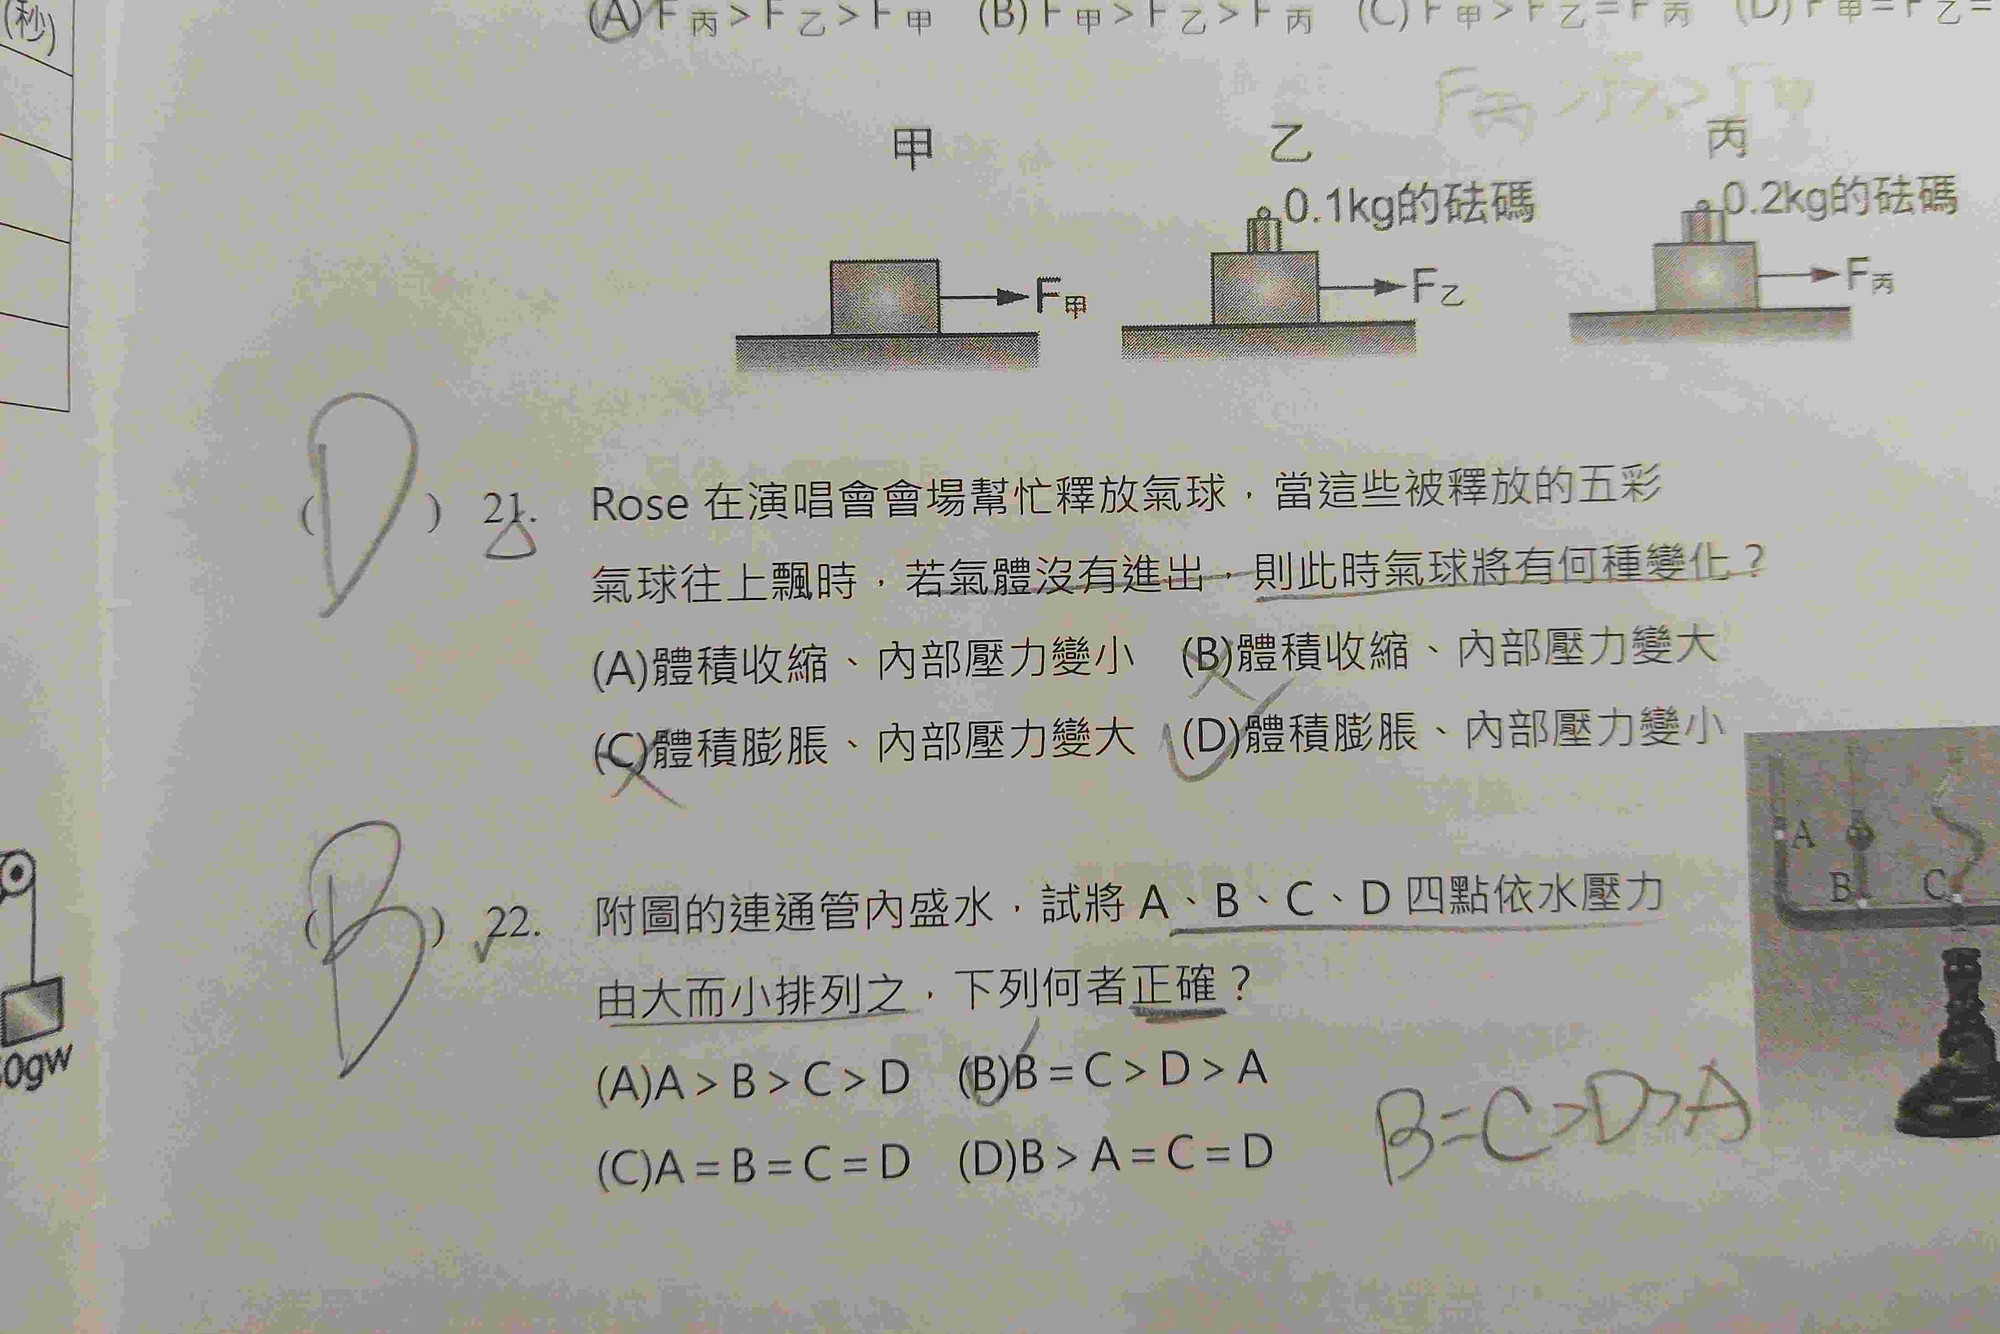 (秒)
(A) F丙 > F乙 > F甲 (B) F甲 > F乙 > F丙 (C) F甲 > F乙 = F丙 (D) F甲 = F乙 =
F丙 > F乙 > F甲
甲 乙 丙
0.1kg的砝碼 0.2kg的砝碼
F甲 F乙 F丙
(D) 21. Rose 在演唱會會場幫忙釋放氣球，當這些被釋放的五彩
氣球往上飄時，若氣體沒有進出，則此時氣球將有何種變化？
(A)體積收縮、內部壓力變小 (B)體積收縮、內部壓力變大
(C)體積膨脹、內部壓力變大 (D)體積膨脹、內部壓力變小
(B) 22. 附圖的連通管內盛水，試將 A、B、C、D 四點依水壓力
由大而小排列之，下列何者正確？
(A)A > B > C > D (B)B = C > D > A
(C)A = B = C = D (D)B > A = C = D
B=C>D>A
A
B C
0gw